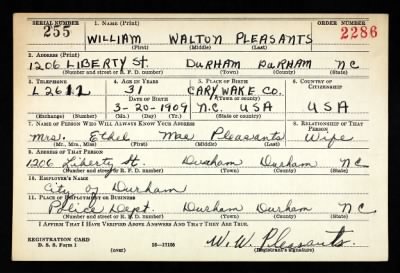 SERIAL NUMBER 1. NAME (Print) ORDER NUMBER
255 WILLIAM WALTON PLEASANTS 2286
(First) (Middle) (Last)
2. ADDRESS (Print)
1206 LIBERTY St. DURHAM DURHAM NC
(Number and street or R. F. D. number) (Town) (County) (State)
3. TELEPHONE 4. AGE IN YEARS 5. PLACE OF BIRTH 6. COUNTRY OF CITIZENSHIP
L2611 31 CARY WAKE CO.
DATE OF BIRTH (Town or county)
3-20-1909 N.C. USA USA
(Exchange) (Number) (Mo.) (Day) (Yr.) (State or country)
7. NAME OF PERSON WHO WILL ALWAYS KNOW YOUR ADDRESS 8. RELATIONSHIP OF THAT PERSON
Mrs. Ethel Mae Pleasants Wife
(Mr., Mrs., Miss) (First) (Middle) (Last)
9. ADDRESS OF THAT PERSON
1206 Liberty St. Durham Durham NC
(Number and street or R. F. D. number) (Town) (County) (State)
10. EMPLOYER'S NAME
City of Durham
11. PLACE OF EMPLOYMENT OR BUSINESS
Police Dept. Durham Durham NC
(Number and street or R. F. D. number) (Town) (County) (State)
I AFFIRM THAT I HAVE VERIFIED ABOVE ANSWERS AND THAT THEY ARE TRUE.
REGISTRATION CARD
D. S. S. Form 1 (over) W. W. Pleasants.
(Registrant's signature)